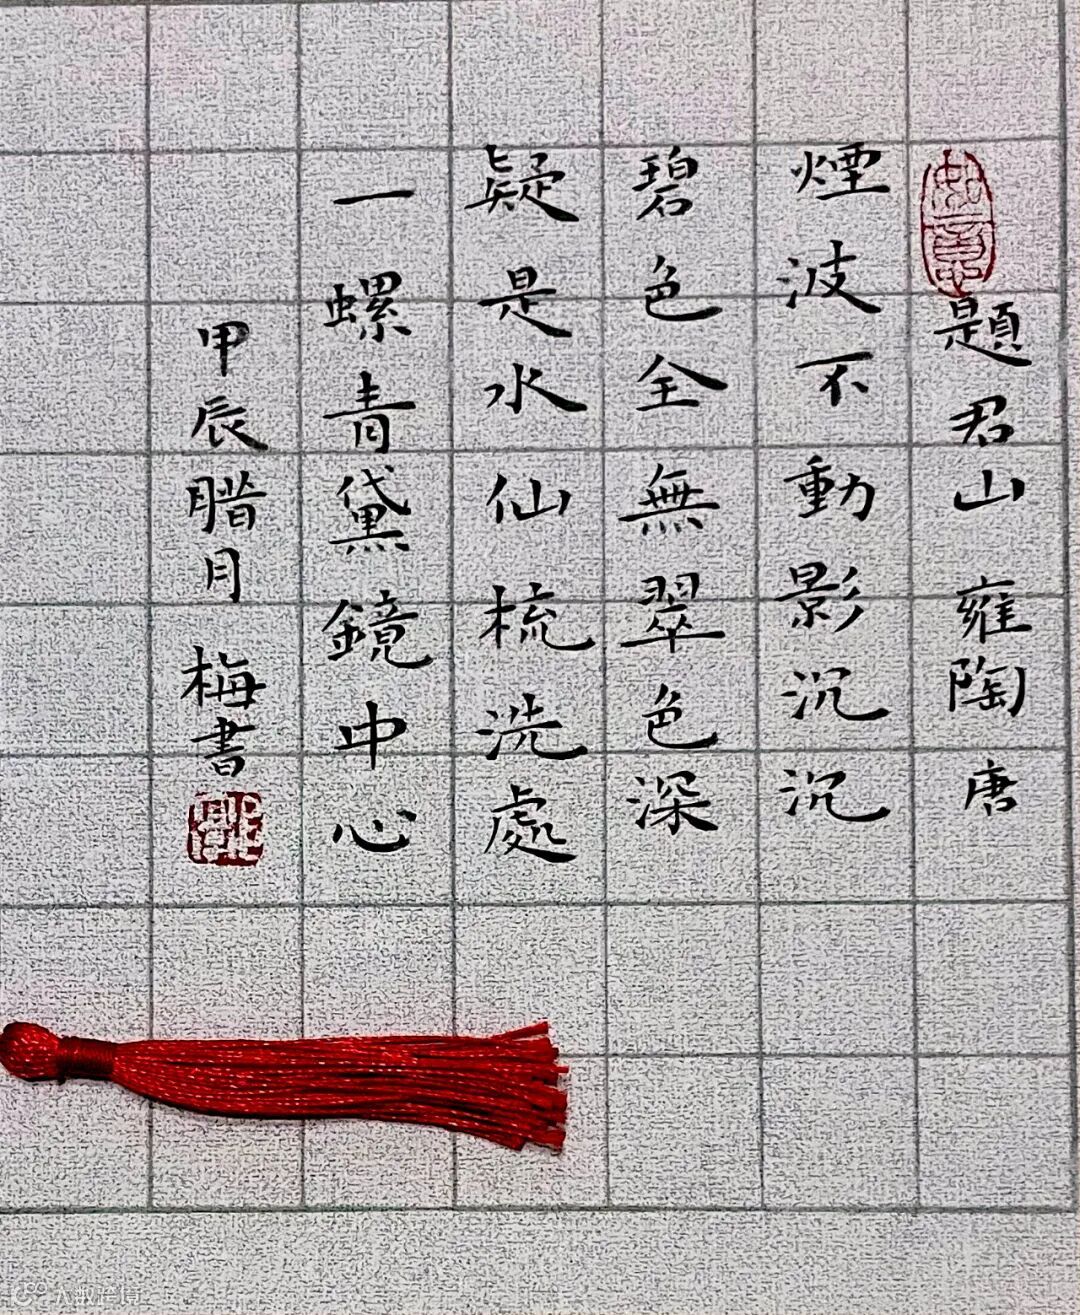 如意
題君山 雍陶 唐
煙波不動影沉沉
碧色全無翠色深
疑是水仙梳洗處
一螺青黛鏡中心
甲辰腊月 梅書
大数跨境